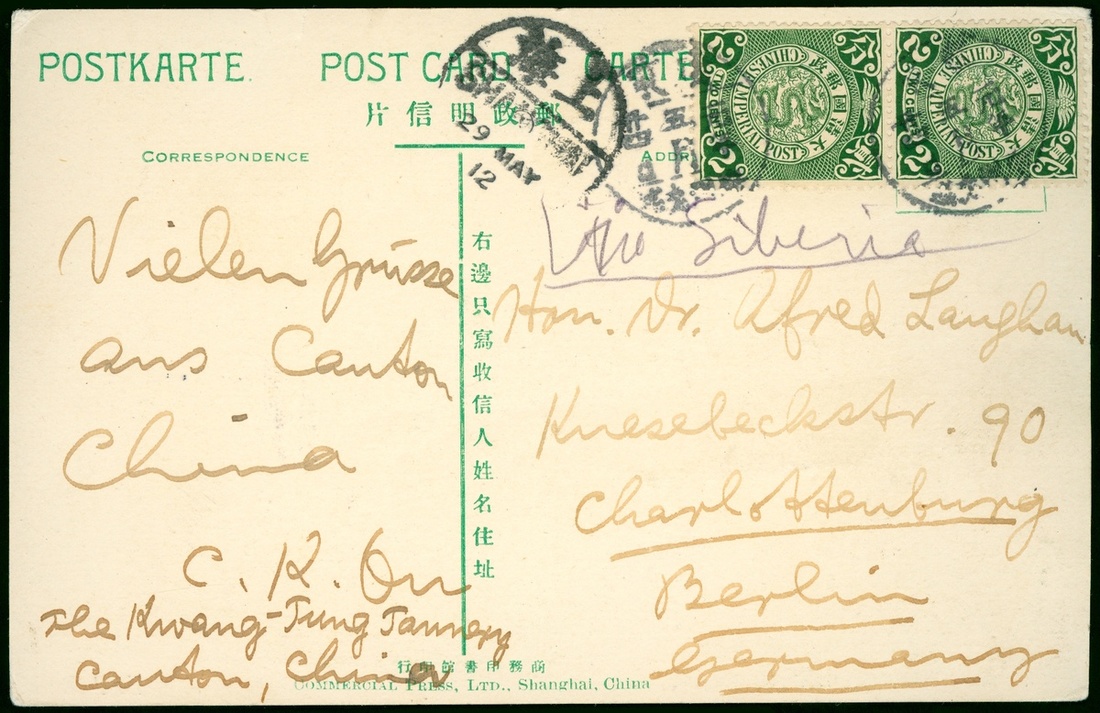 POSTKARTE. POST CARD. CARTE
郵政明信片
CORRESPONDENCE
SHANGHAI
上海
29 MAY 12
貳分 CHINESE IMPERIAL POST 大清國郵政 TWO CENTS 2 2
貳分 CHINESE IMPERIAL POST 大清國郵政 TWO CENTS 2 2
右邊只寫收信人姓名住址
Vielen Grüsse
aus Canton
China
C. K. Ou
The Kwang-Tung Tannery
Canton, China
Via Siberia
Hon. Dr. Alfred Langhan
Knesebeckstr. 90
Charlottenburg
Berlin
Germany
商務印書館印行
COMMERCIAL PRESS, LTD., Shanghai, China